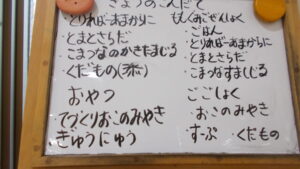 きょうのこんだて
・とりればーあまからに
・とまとさらだ
・こまつなのかきたまじる
・くだもの
おやつ
てづくりおこのみやき
ぎゅうにゅう
もくあさんしょく
・ごはん
・とりればーあまからに
・とまとさらだ
・こまつなすましじる
ごごしょく
・おこのみやき
・すーぷ ・くだもの